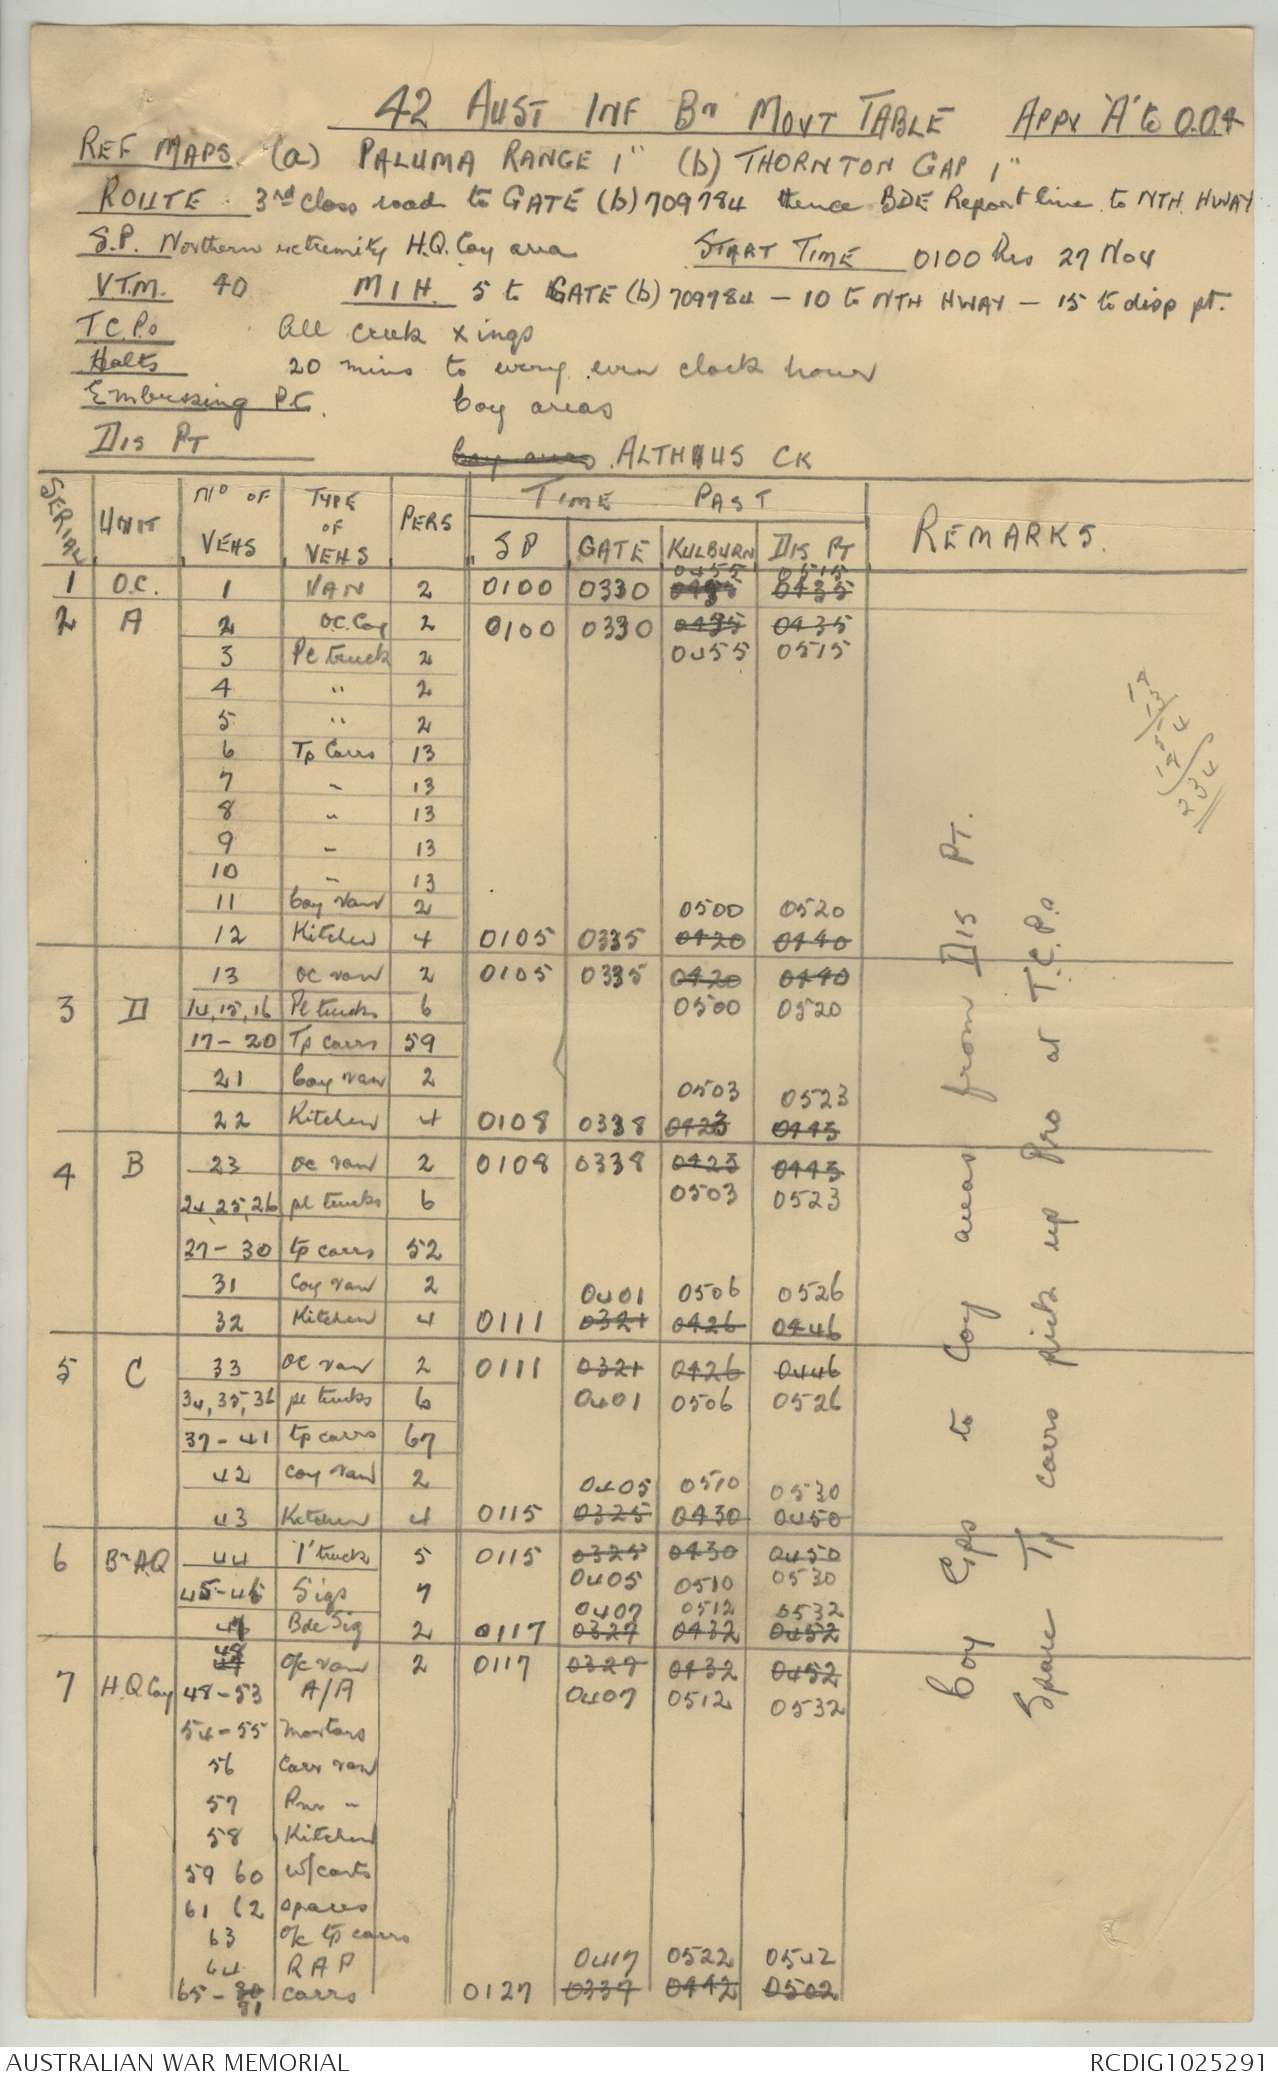 42 AUST INF Bn MOVT TABLE APPX 'A' to O.O.4
REF MAPS. (a) PALUMA RANGE 1" (b) THORNTON GAP 1"
ROUTE. 3rd class road to GATE (b) 709784 thence BDE Report line to NTH. HWAY
S.P. Northern extremity H.Q. Coy area START TIME 0100 hrs 27 Nov
V.T.M. 40 M I H. 5 to GATE (b) 709784 - 10 to NTH HWAY - 15 to disp pt.
T.C.Ps All creek xings
Halts 20 mins to every even clock hour
Embussing Pt. Coy areas
DIS PT Coy areas ALTHAUS CK
SERIAL UNIT No OF VEHS TYPE OF VEHS PERS TIME PAST REMARKS.
SP GATE KULBURN DIS PT
0455 0515
1 O.C. 1 VAN 2 0100 0330 0435
2 A 2 OC. Coy 2 0100 0330 0435
3 Pl truck 2 0455 0515
4 " 2
5 " 2
6 Tp Carrs 13
7 " 13
8 " 13
9 " 13
10 " 13
11 Coy van 2 0500 0520
12 Kitchen 4 0105 0335 0420 0440
13 OC van 2 0105 0335 0420 0440
3 D 14, 15, 16 Pl trucks 6 0500 0520
17 - 20 Tp carrs 59
21 Coy van 2 0503 0523
22 Kitchen 4 0108 0338 0423 0443
4 B 23 OC van 2 0108 0338 0423 0443
24, 25, 26 pl trucks 6 0503 0523
27 - 30 tp carrs 52
31 Coy van 2 0401 0506 0526
32 Kitchen 4 0111 0321 0426 0446
5 C 33 OC van 2 0111 0321 0426 0446
34, 35, 36 pl trucks 6 0401 0506 0526
37 - 41 tp carrs 67
42 coy van 2 0405 0510 0530
43 Kitchen 4 0115 0325 0430 0450
6 Bn HQ 44 'I' truck 5 0115 0325 0430 0450
45-46 Sigs 7 0405 0510 0530
0407 0512 0532
47 Bde Sig 2 0117 0327 0432 0452
48
7 H.Q. Coy O/C van 2 0117 0327 0432 0452
48-53 A/A 0407 0512 0532
54-55 Mortars
56 Carr van
57 Pnr "
58 Kitchen
59 60 w/carts
61 62 spares
63 O/C tp carrs
64 RAP 0417 0522 0542
65 - 80 81 carrs 0127 0337 0442 0502
18
13
54
18
234
Coy Gps to Coy areas from DIS PT.
Spare Tp carrs pick up Pro at T.C.Ps
AUSTRALIAN WAR MEMORIAL RCDIG1025291